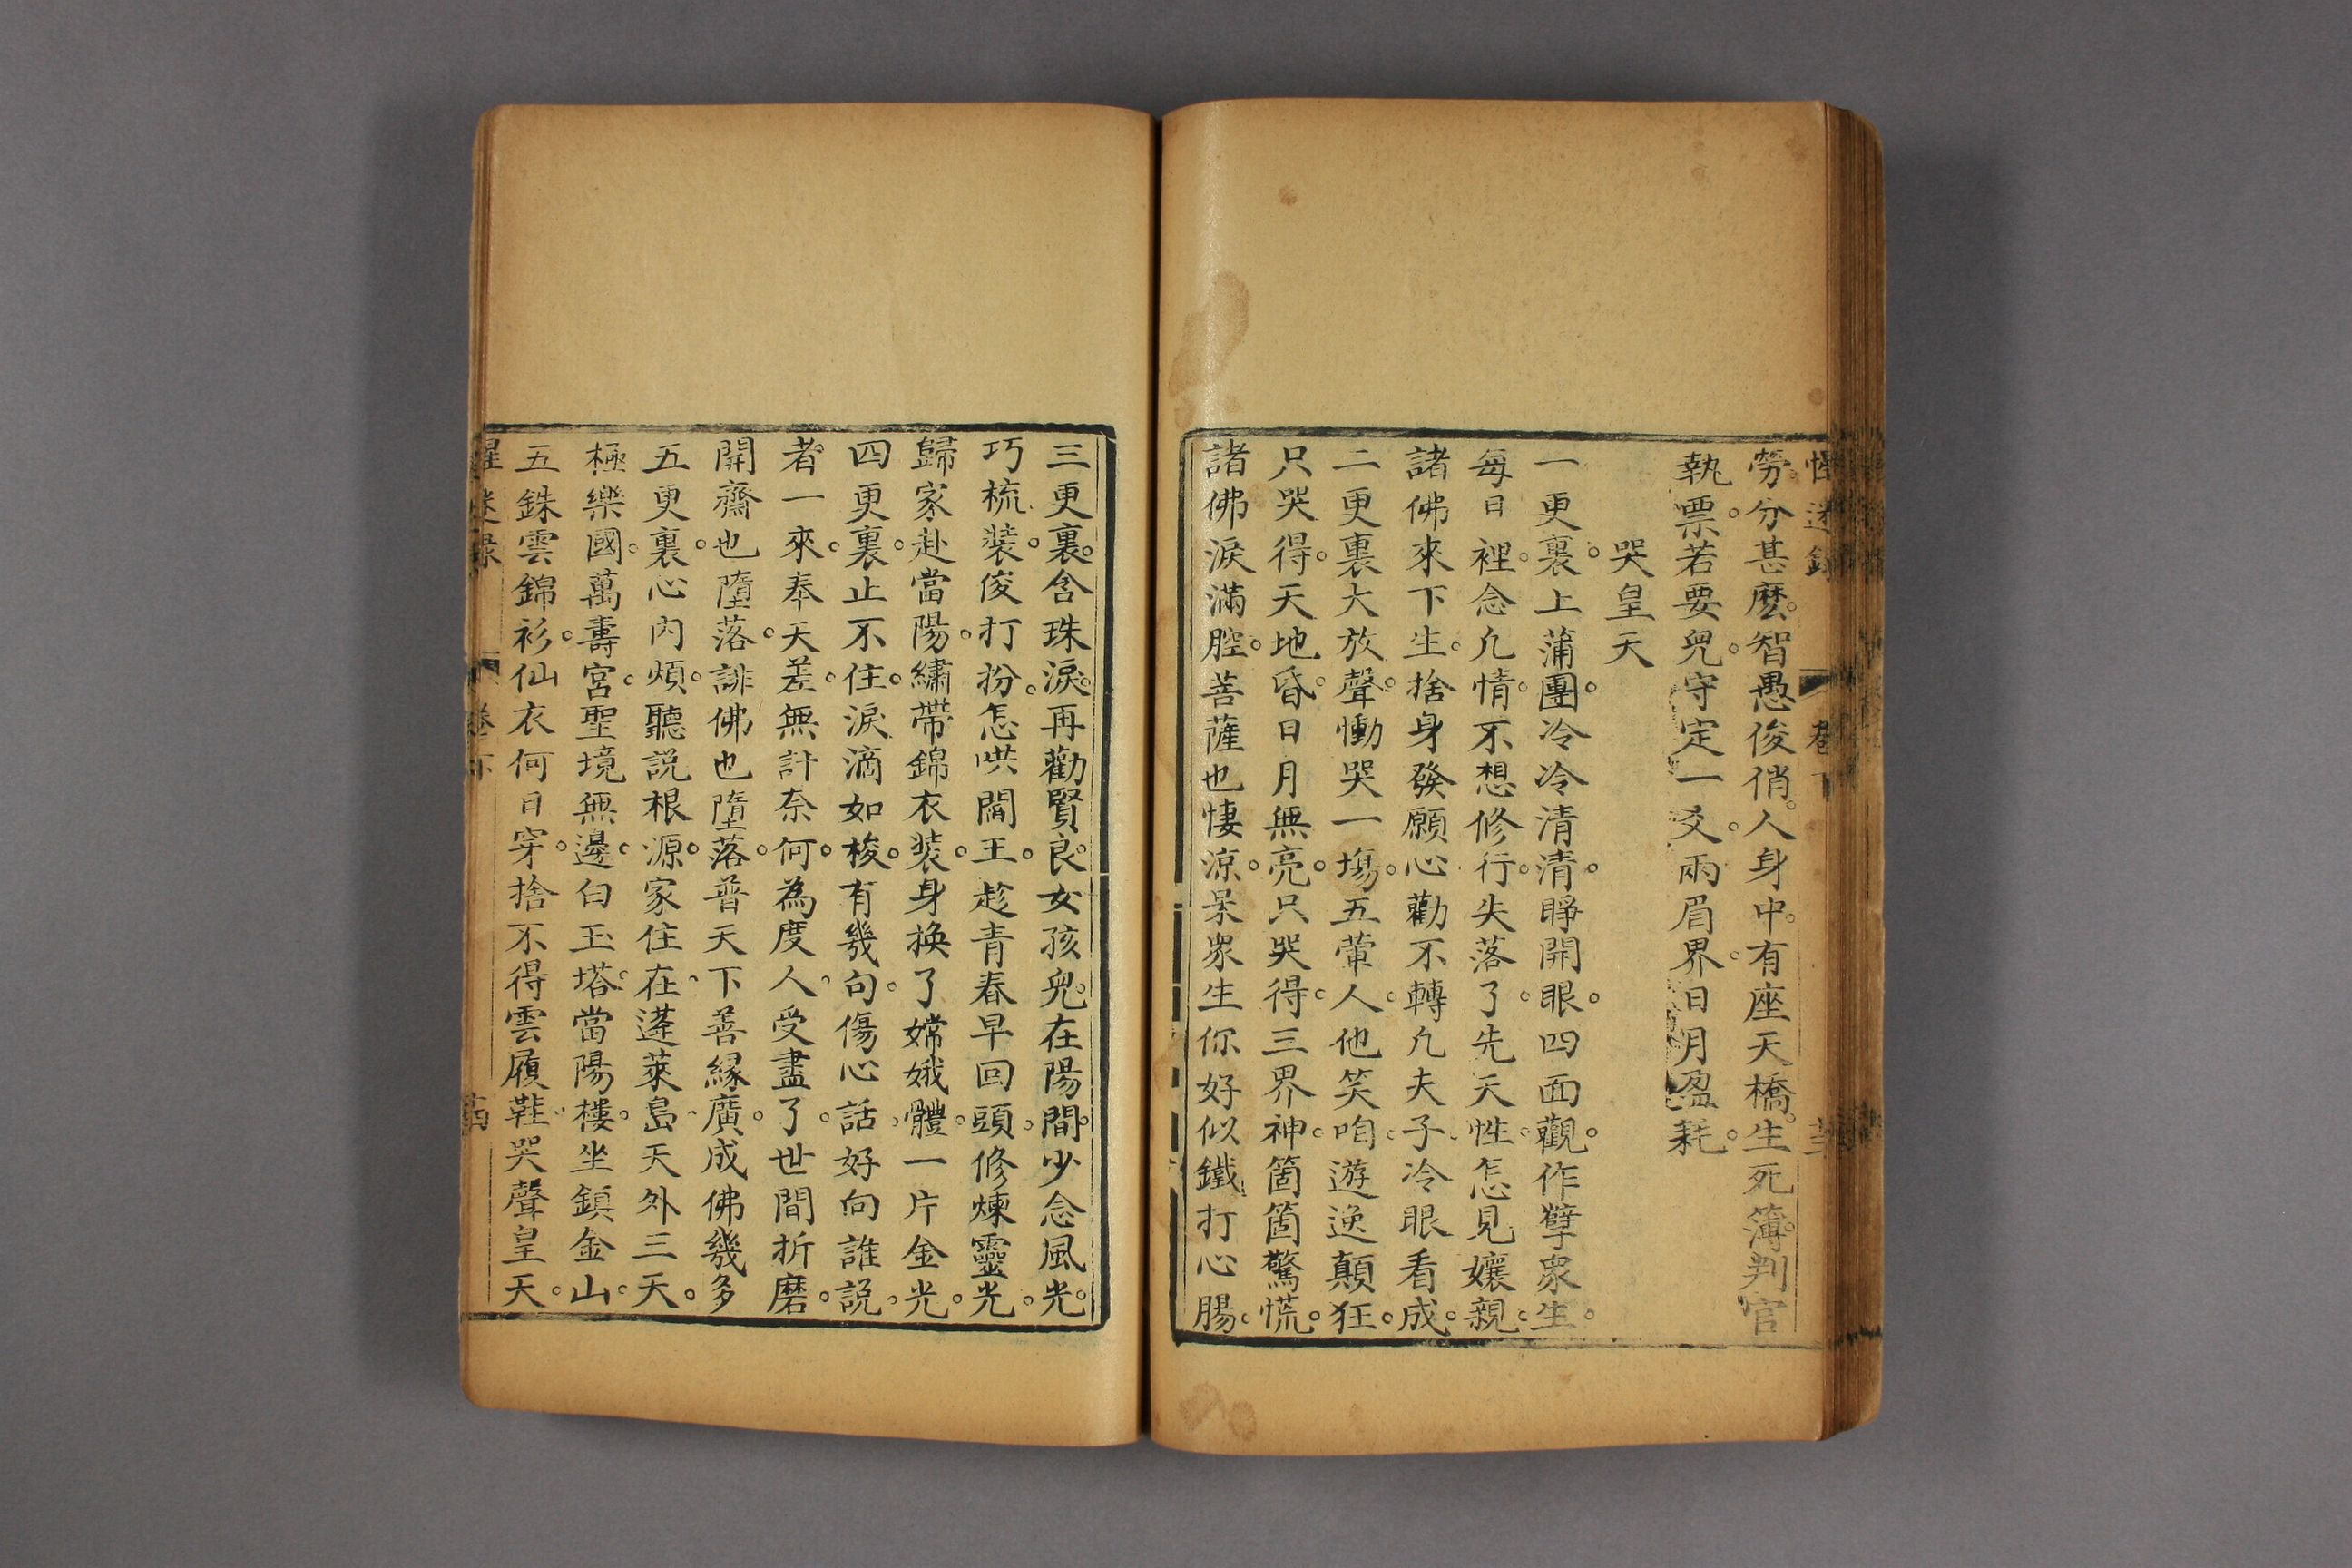 惺迷錄 卷下
勞。分甚麽。智愚俊俏。人身中。有座天橋。生死簿。判官
執票。若要兒。守定一爻。兩眉界。日月盈耗。
哭皇天
一更裏。上蒲團。冷冷清清。睜開眼。四面觀。作孽衆生。
每日裡。念凢情。不想修行。失落了。先天性。怎見孃親。
諸佛來下生。捨身發願心。勸不轉凢夫子。冷眼看成。
二更裏大放聲。慟哭一塲。五葷人。他笑咱。遊逸顛狂。
只哭得。天地昏。日月無亮。只哭得。三界神。箇箇驚慌。
諸佛淚滿腔。菩薩也悽涼。呆衆生你好似鐵打心腸。
三更裏。含珠淚。再勸賢良。女孩兒。在陽間。少念風光。
巧梳裝。俊打扮。怎哄閻王。趁青春早回頭。修煉靈光。
歸家赴當陽。繡帶錦衣裝。身換了嫦娥體。一片金光。
四更裏。止不住。淚滴如梭。有幾句。傷心話。好向誰説。
者一來。奉天差。無計奈何。為度人。受盡了。世間折磨。
開齋也墮落。誹佛也墮落。普天下善緣廣。成佛幾多
五更裏。心內煩。聽説根源。家住在。蓬萊島。天外三天。
極樂國。萬壽宮。聖境無邊。白玉塔。當陽樓。坐鎮金山。
五銖雲錦衫。仙衣何日穿。捨不得雲履鞋。哭聲皇天。
惺迷錄 卷下